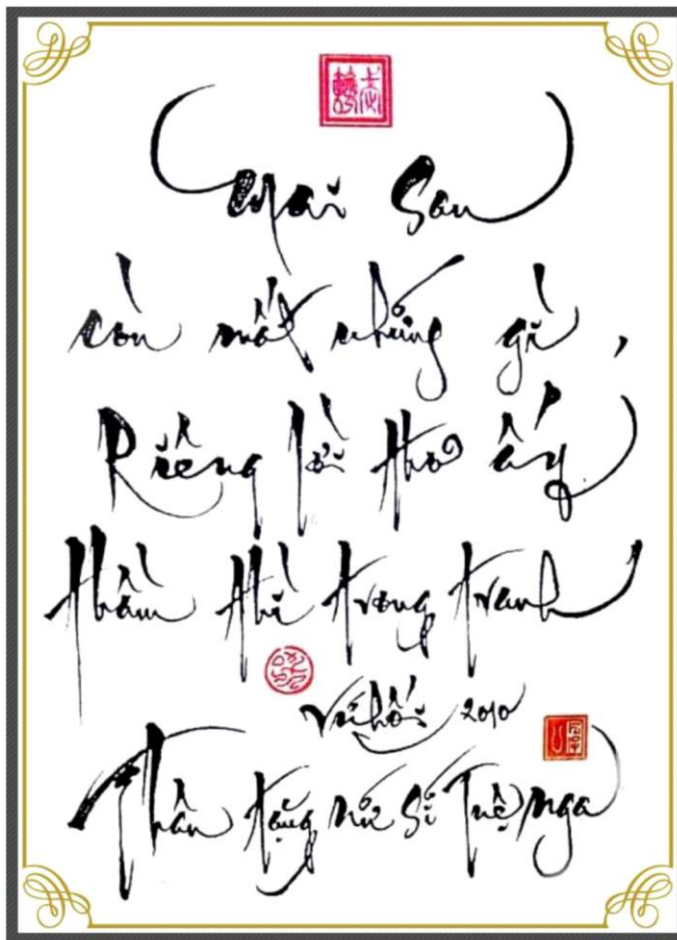 Mai sau
còn mất những gì,
Riêng lời thơ ấy
thầm thì trong tranh
Vũ Hối 2010
Thân tặng nữ sĩ Tuệ Nga